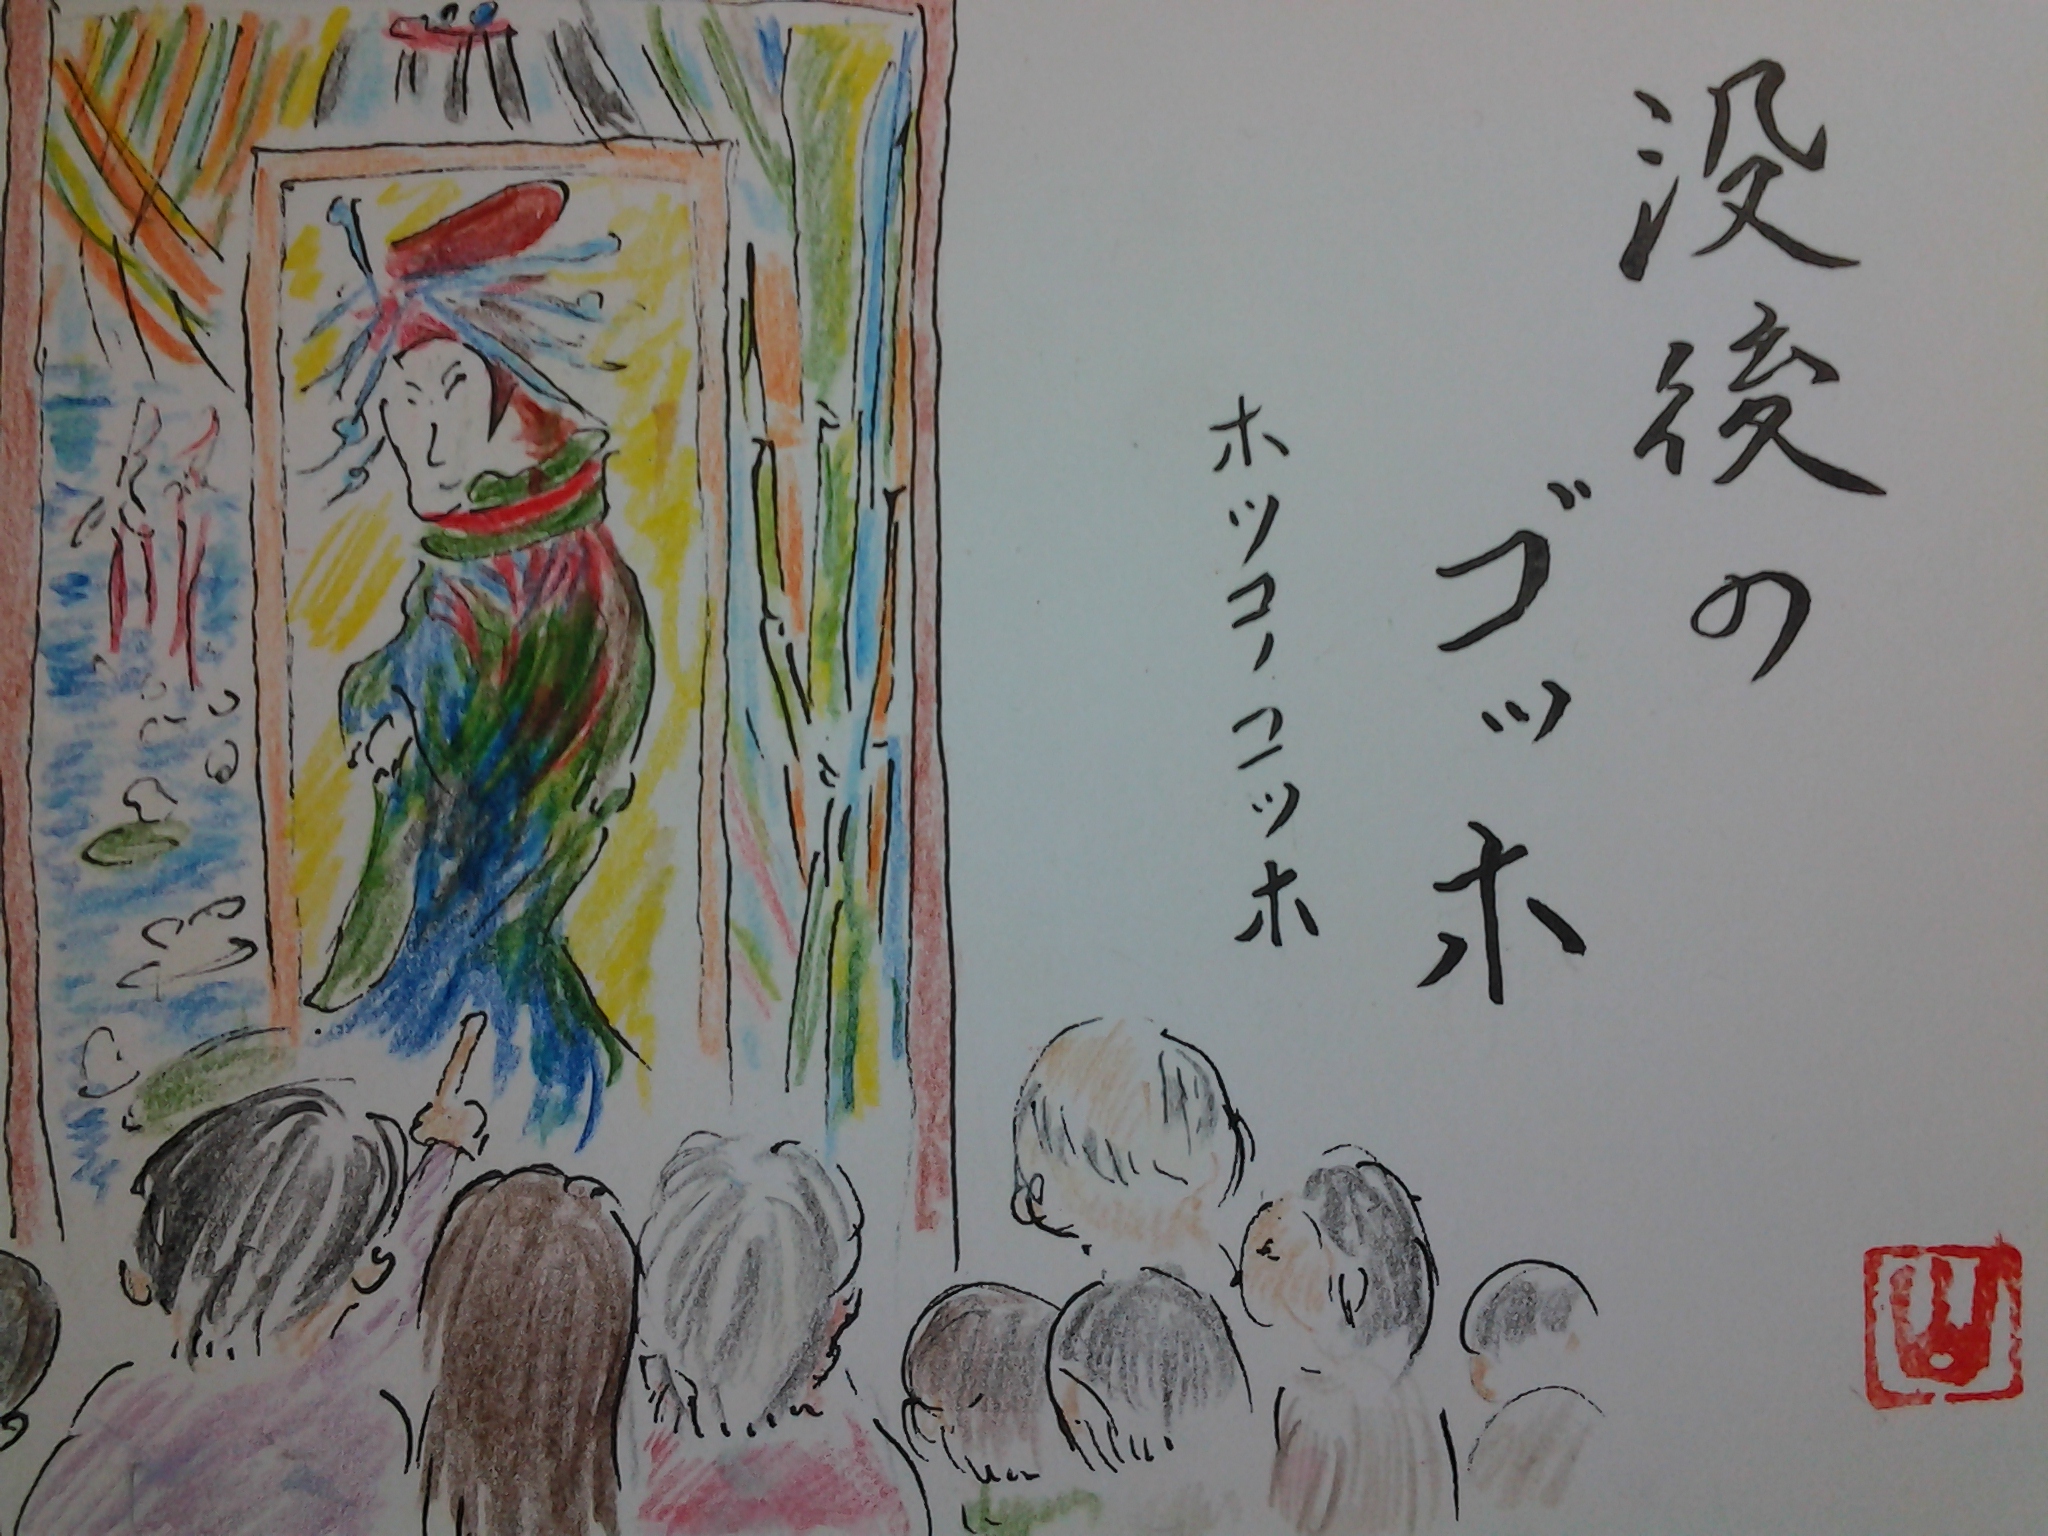 没後の
ゴッホ
ホツコノコツホ